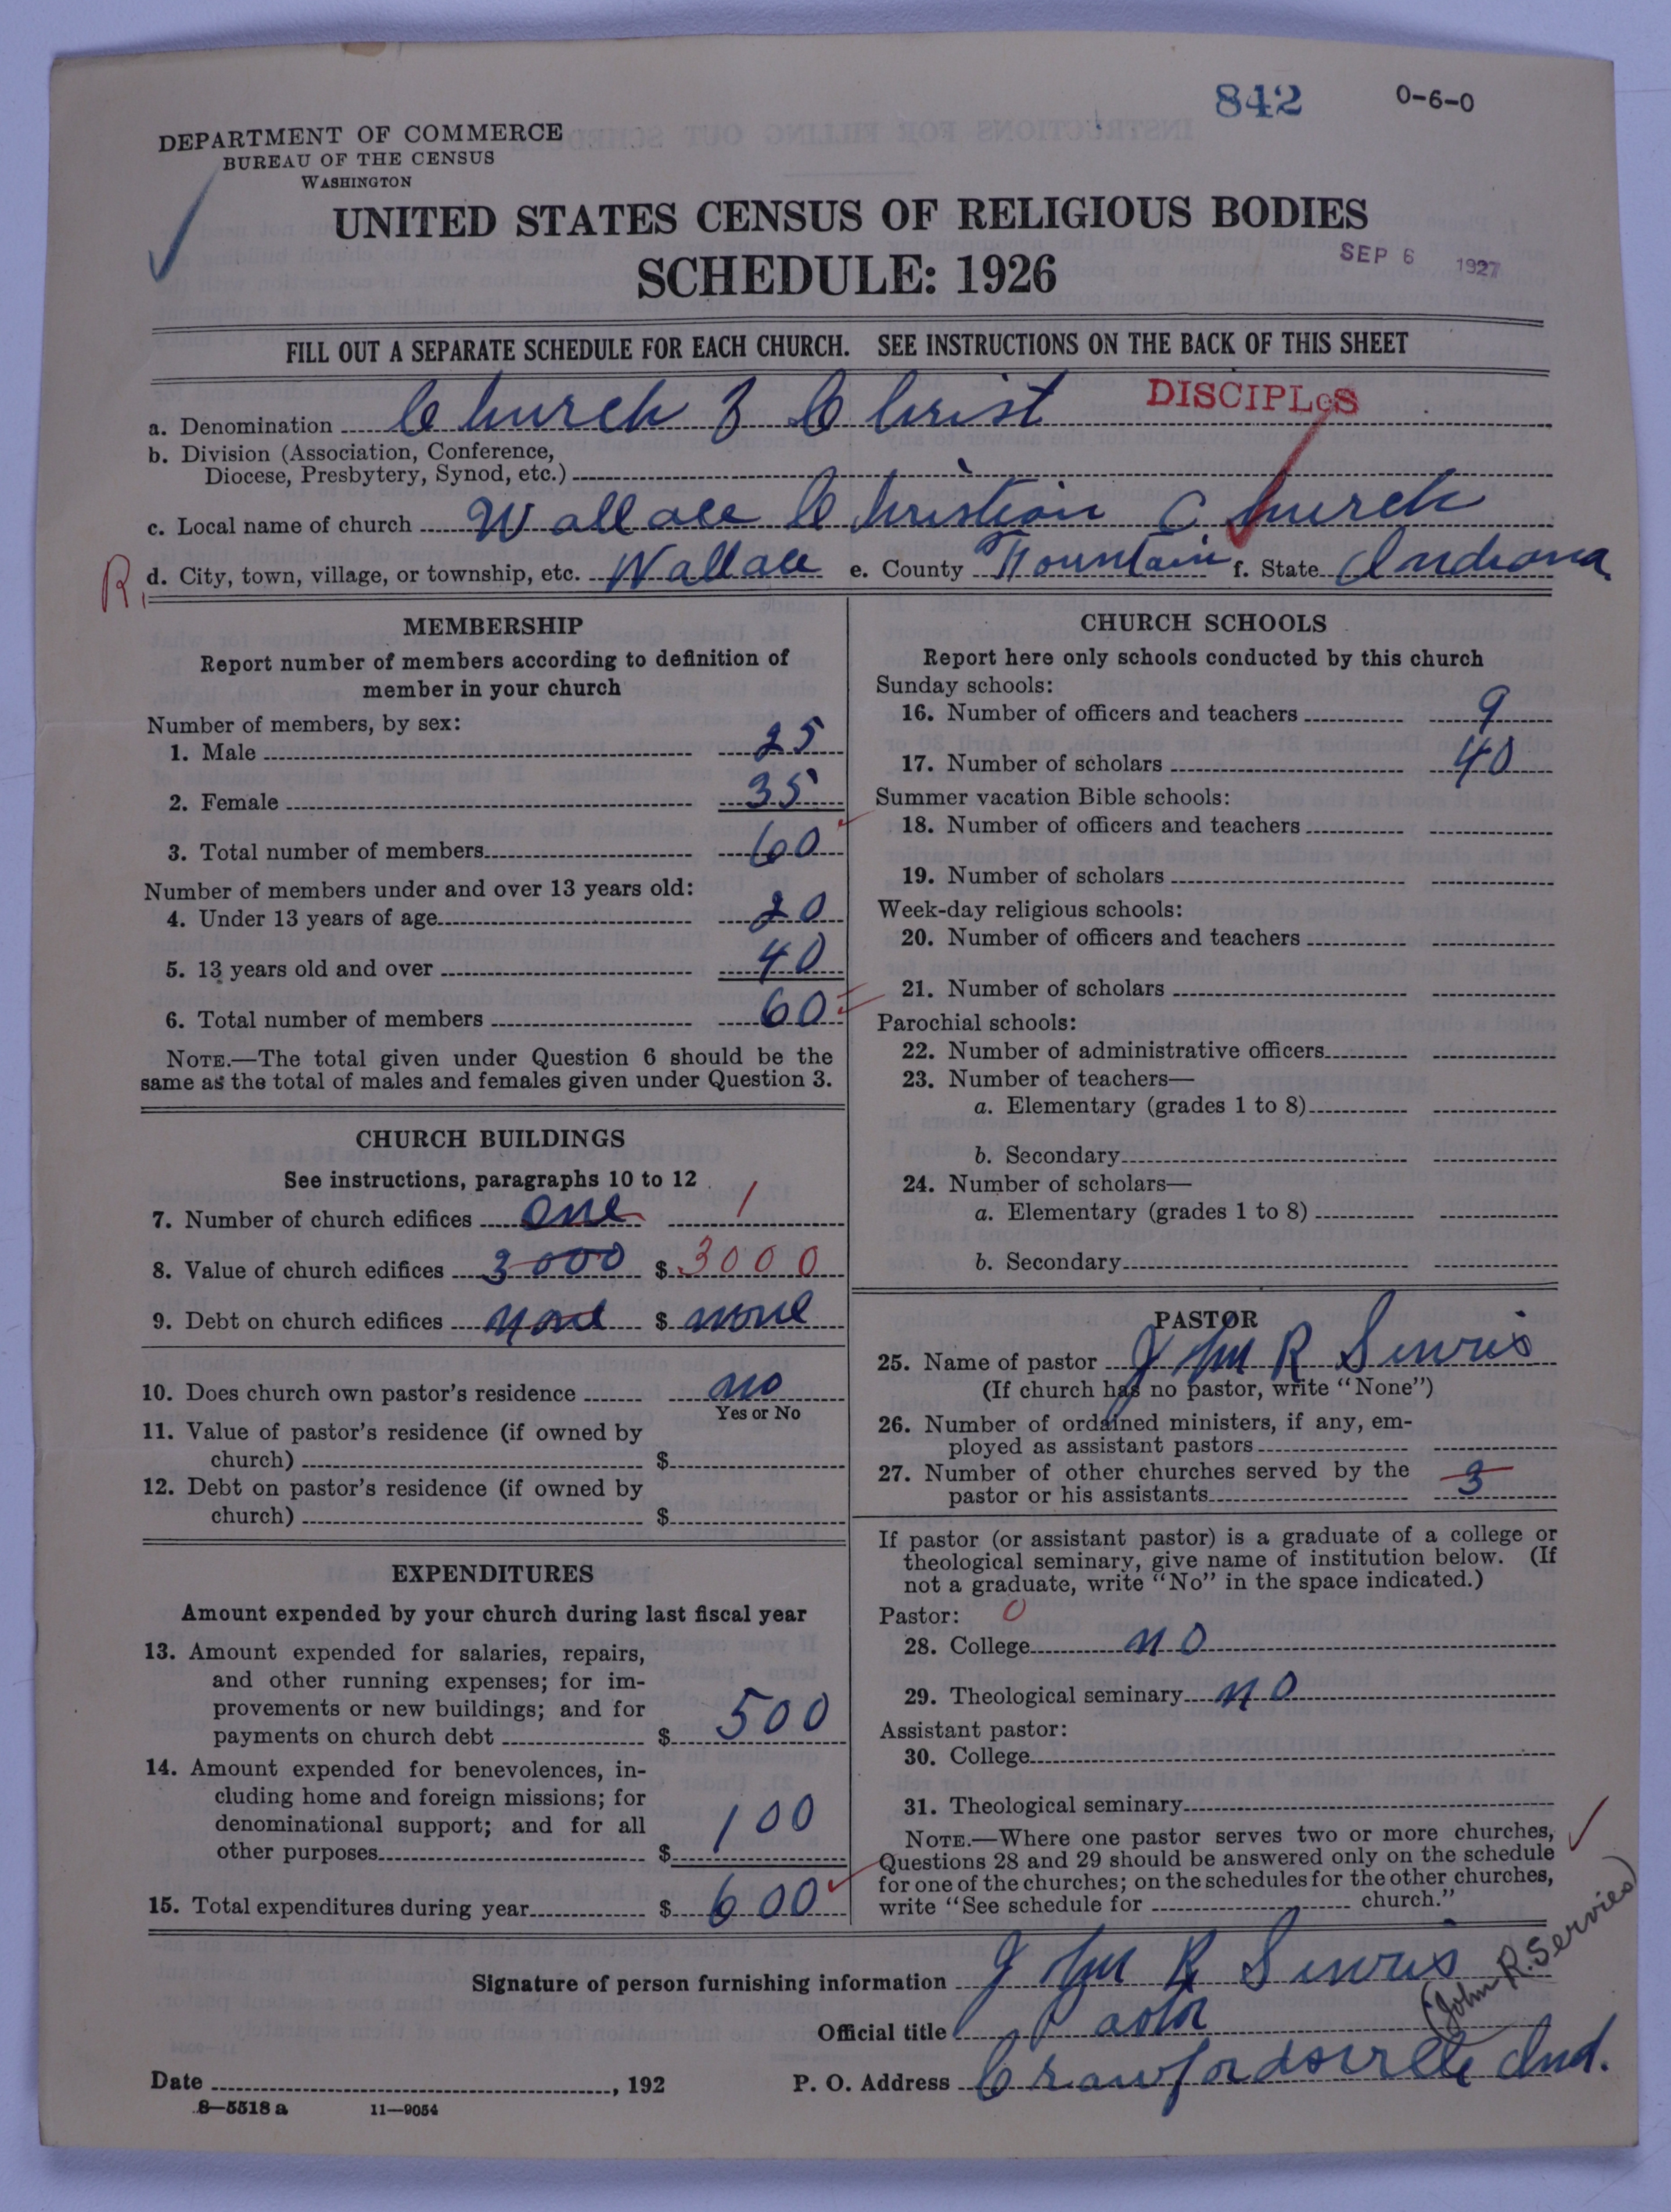 842 0-6-0
DEPARTMENT OF COMMERCE
BUREAU OF THE CENSUS
WASHINGTON
UNITED STATES CENSUS OF RELIGIOUS BODIES
SEP 6 1927
SCHEDULE: 1926
FILL OUT A SEPARATE SCHEDULE FOR EACH CHURCH. SEE INSTRUCTIONS ON THE BACK OF THIS SHEET
a. Denomination Church of Christ DISCIPLeS
b. Division (Association, Conference,
Diocese, Presbytery, Synod, etc.)
c. Local name of church Wallace Christian Church
R. d. City, town, village, or township, etc. Wallace e. County Fountain f. State Indiana
MEMBERSHIP
Report number of members according to definition of
member in your church
Number of members, by sex:
1. Male 25
2. Female 35
3. Total number of members 60
Number of members under and over 13 years old:
4. Under 13 years of age 20
5. 13 years old and over 40
6. Total number of members 60
NOTE.—The total given under Question 6 should be the
same as the total of males and females given under Question 3.
CHURCH BUILDINGS
See instructions, paragraphs 10 to 12
7. Number of church edifices one 1
8. Value of church edifices 3000 $ 3000
9. Debt on church edifices none $ none
10. Does church own pastor's residence no
Yes or No
11. Value of pastor's residence (if owned by
church) $
12. Debt on pastor's residence (if owned by
church) $
EXPENDITURES
Amount expended by your church during last fiscal year
13. Amount expended for salaries, repairs,
and other running expenses; for im-
provements or new buildings; and for
payments on church debt $ 500
14. Amount expended for benevolences, in-
cluding home and foreign missions; for
denominational support; and for all
other purposes $ 100
15. Total expenditures during year $ 600
CHURCH SCHOOLS
Report here only schools conducted by this church
Sunday schools:
16. Number of officers and teachers 9
17. Number of scholars 40
Summer vacation Bible schools:
18. Number of officers and teachers
19. Number of scholars
Week-day religious schools:
20. Number of officers and teachers
21. Number of scholars
Parochial schools:
22. Number of administrative officers
23. Number of teachers—
a. Elementary (grades 1 to 8)
b. Secondary
24. Number of scholars—
a. Elementary (grades 1 to 8)
b. Secondary
PASTOR
25. Name of pastor John R Servies
(If church has no pastor, write "None")
26. Number of ordained ministers, if any, em-
ployed as assistant pastors
27. Number of other churches served by the
pastor or his assistants 3
If pastor (or assistant pastor) is a graduate of a college or
theological seminary, give name of institution below. (If
not a graduate, write "No" in the space indicated.)
Pastor: 0
28. College no
29. Theological seminary no
Assistant pastor:
30. College
31. Theological seminary
NOTE.—Where one pastor serves two or more churches,
Questions 28 and 29 should be answered only on the schedule
for one of the churches; on the schedules for the other churches,
write "See schedule for church."
Signature of person furnishing information John R Servies
(John R. Servies)
Official title Pastor
Date , 192 P. O. Address Crawfordsville Ind.
8—5518 a 11—9054